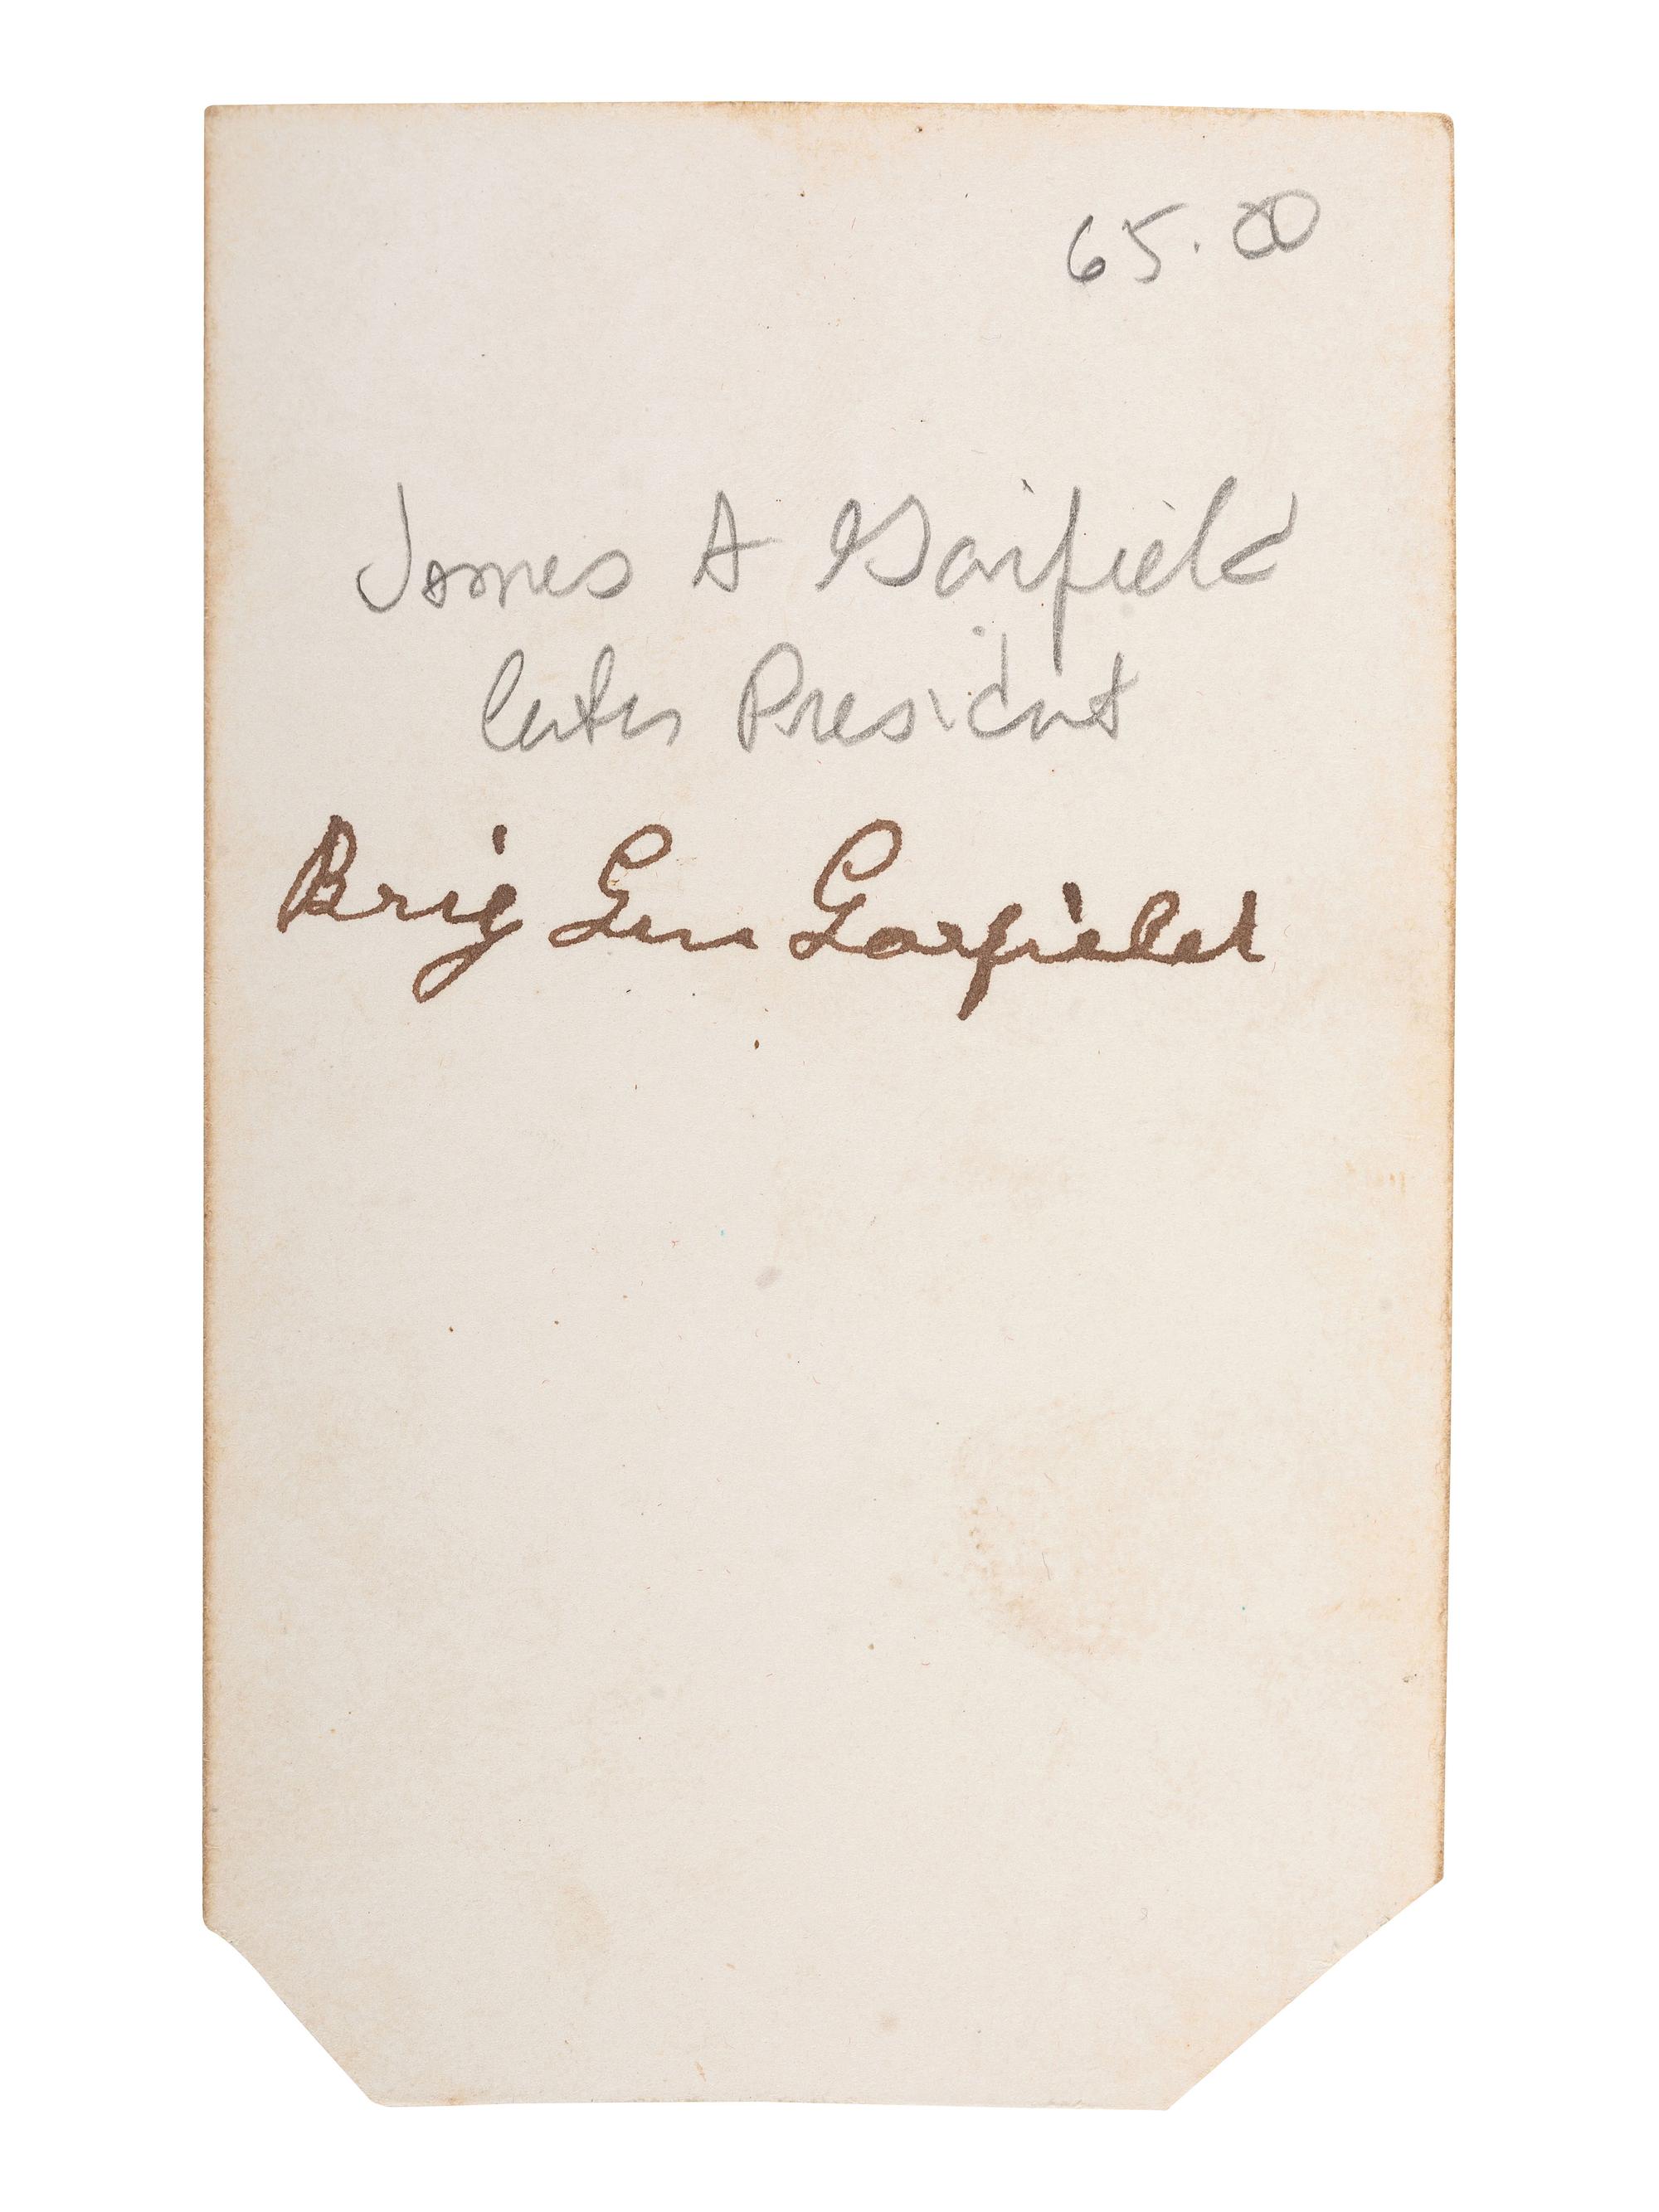 65.00
James A Garfield
later President
Brig Gen Garfield